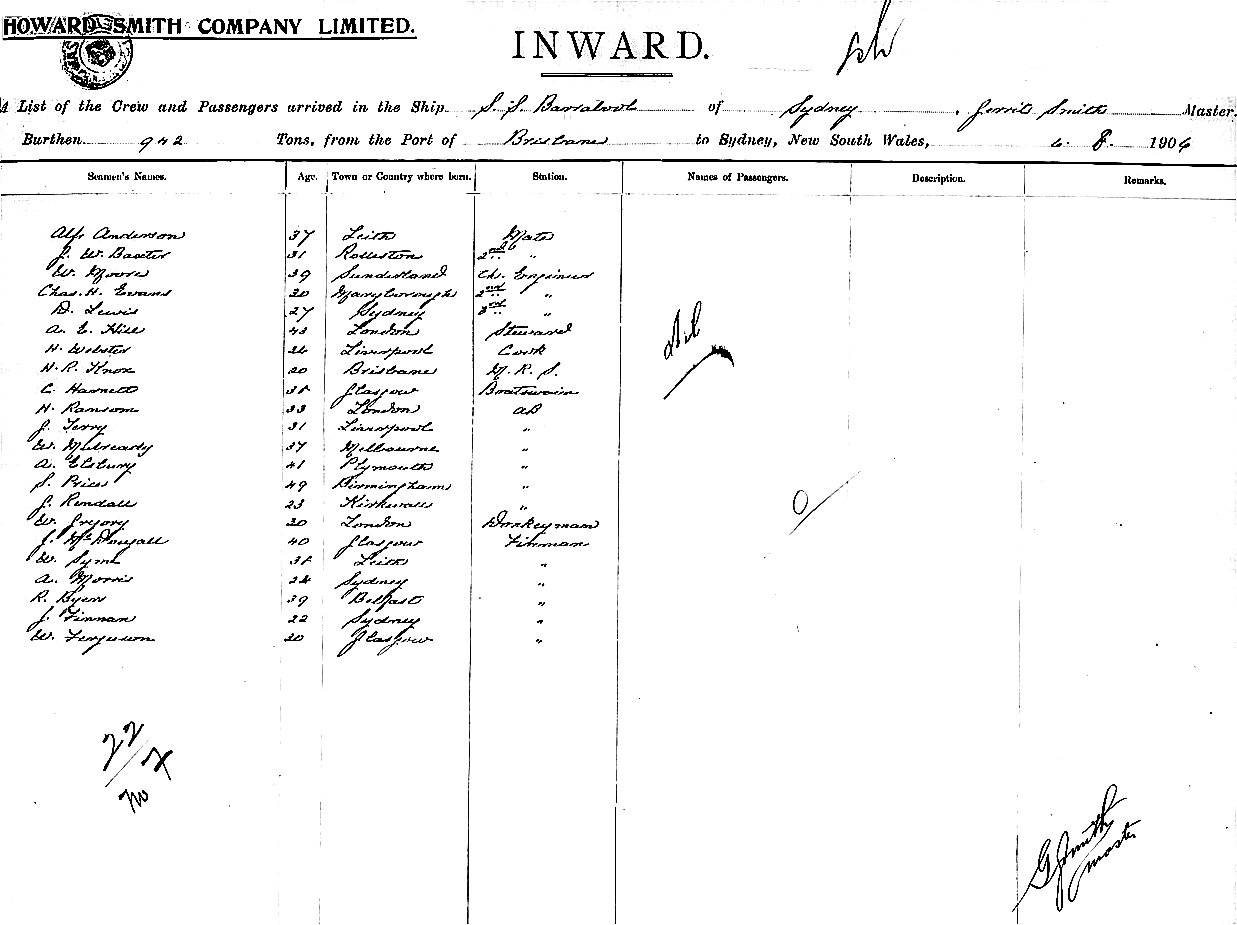 HOWARD SMITH COMPANY LIMITED.
INWARD.
A List of the Crew and Passengers arrived in the Ship S. S. Barrabool of Sydney, Gerrit Smith Master.
Burthen 942 Tons, from the Port of Brisbane to Sydney, New South Wales, 6. 8. 1906
Seamen's Names. Age. Town or Country where born. Station. Names of Passengers. Description. Remarks.
Alf. Anderson 37 Leith Mate
J. W. Baxter 31 Rolleston 2nd "
W. Moore 39 Sunderland Ch. Engineer
Chas. H. Evans 30 Maryborough 2nd "
D. Lewis 27 Sydney 3rd "
A. E. Hill 43 London Steward
H. Webster 26 Liverpool Cook
H. R. Knox 20 Brisbane M. R. S.
C. Harnett 38 Glasgow Boatswain
H. Ransom 33 London AB
J. Terry 31 Liverpool "
W. Mulready 37 Melbourne "
A. Elsbury 41 Plymouth "
S. Price 49 Birmingham "
J. Rendall 23 Kirkwall "
W. Gregory 30 London Donkeyman
J. McDougall 40 Glasgow Fireman
W. Syme 38 Leith "
A. Morris 24 Sydney "
R. Byers 39 Belfast "
J. Finnan 22 Sydney "
W. Ferguson 30 Glasgow "
Nil
22
G Smith
master